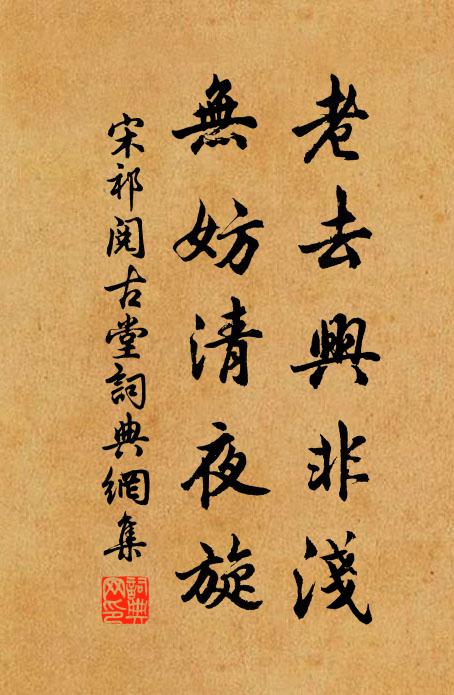 老去興非淺
無妨清夜旋
宋祁閱古堂詞典網集
詞典網印